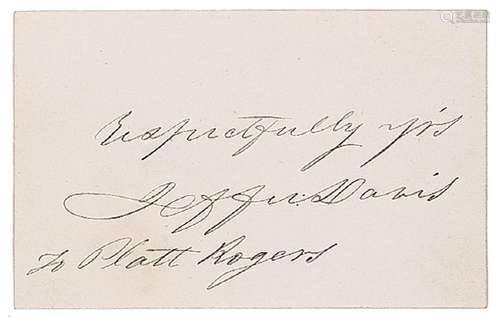 Respectfully yrs
Jeffn. Davis
To Platt Rogers